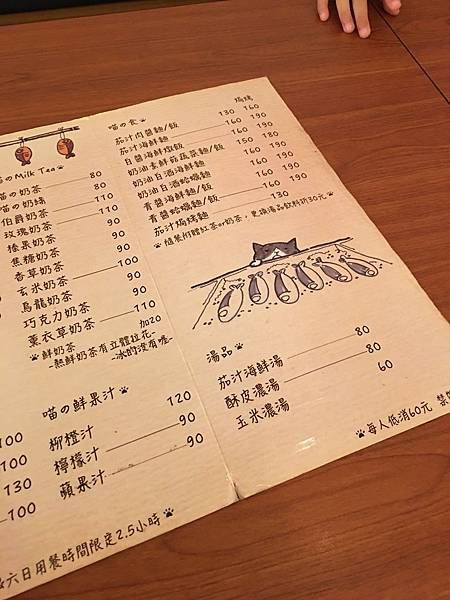 喵の食
焗烤
茄汁肉醬麵/飯 130 160
茄汁海鮮麵 160 190
白醬海鮮燉飯 160 190
奶油素鮮菇蔬菜麵/飯 150 180
奶油白酒海鮮麵 160 190
奶油白酒蛤蠣麵 160 190
青醬海鮮麵/飯 160 190
青醬蛤蠣麵/飯 160 190
茄汁焗烤麵 130
隨餐附贈紅茶or奶茶，更換湯品飲料折30元
喵のMilk Tea
喵の奶茶 80
喵の奶綠 90
伯爵奶茶 110
玫瑰奶茶 90
榛果奶茶 90
焦糖奶茶 90
香草奶茶 100
玄米奶茶 90
烏龍奶茶 90
巧克力奶茶 110
薰衣草奶茶
鮮奶茶 加20
-熱鮮奶茶有立體拉花-
-冰的沒有喔-
喵の鮮果汁
柳橙汁 120
檸檬汁 90
蘋果汁 90
100
100
130
100
湯品
茄汁海鮮湯 80
酥皮濃湯 80
玉米濃湯 60
每人低消60元 禁
六日用餐時間限定2.5小時